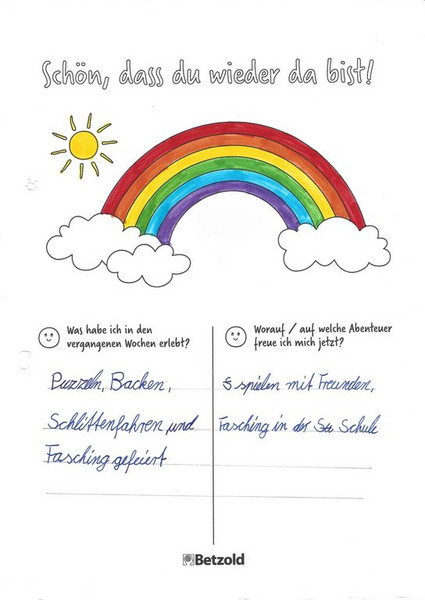 Schön, dass du wieder da bist!
Was habe ich in den
vergangenen Wochen erlebt?
Puzzeln, Backen,
Schlittenfahren, und
Fasching gefeiert
Worauf / auf welche Abenteuer
freue ich mich jetzt?
spielen mit Freunden,
Fasching in der Schule
Betzold